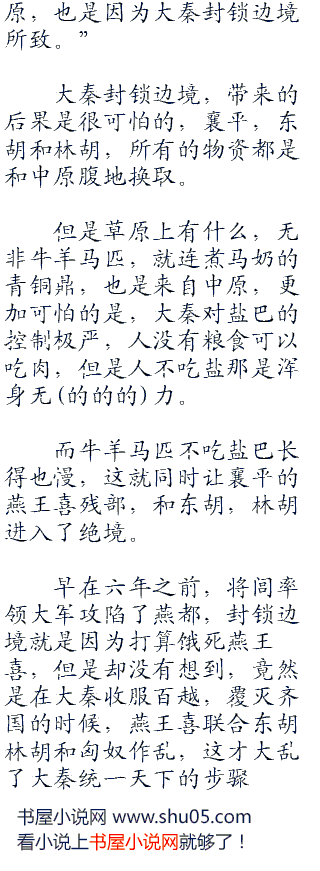 原，也是因为大秦封锁边境
所致。”
大秦封锁边境，带来的
后果是很可怕的，襄平，东
胡和林胡，所有的物资都是
和中原腹地换取。
但是草原上有什么，无
非牛羊马匹，就连煮马奶的
青铜鼎，也是来自中原，更
加可怕的是，大秦对盐巴的
控制极严，人没有粮食可以
吃肉，但是人不吃盐那是浑
身无(的的的)力。
而牛羊马匹不吃盐巴长
得也慢，这就同时让襄平的
燕王喜残部，和东胡，林胡
进入了绝境。
早在六年之前，将闾率
领大军攻陷了燕都，封锁边
境就是因为打算饿死燕王
喜，但是却没有想到，竟然
是在大秦收服百越，覆灭齐
国的时候，燕王喜联合东胡
林胡和匈奴作乱，这才大乱
了大秦统一天下的步骤
书屋小说网 www.shu05.com
看小说上书屋小说网就够了！